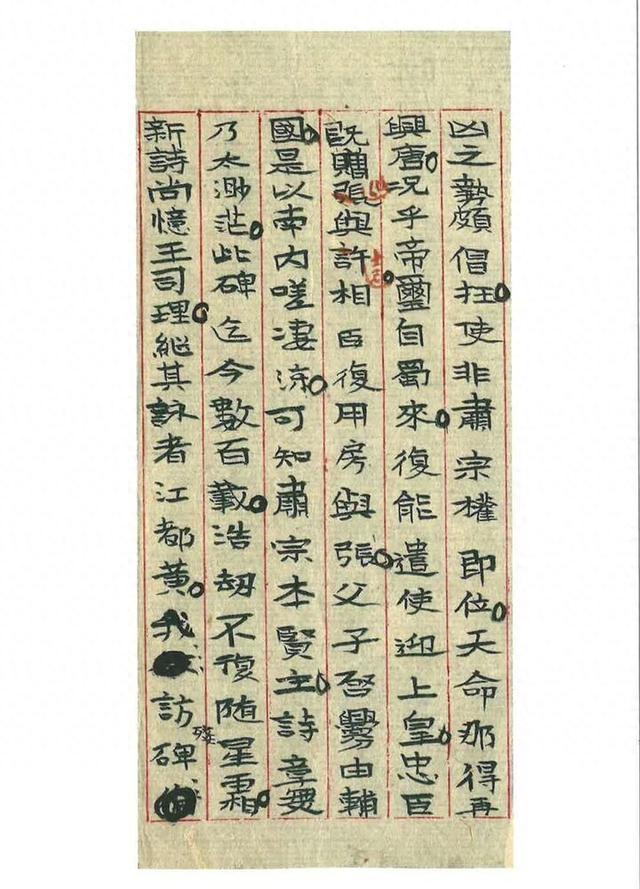 凶之勢頗倡狂使非肅宗權即位天命那得再
興唐况乎帝璽自蜀來復能遣使迎上皇忠臣
既贈張與許相臣復用房與張父子啓釁由輔
國是以南內嗟凄涼可知肅宗本賢主詩章
乃太渺茫此碑迄今數百載浩劫不復随星霜
新詩尚憶王司理繼其詠者江都黃我訪殘碑